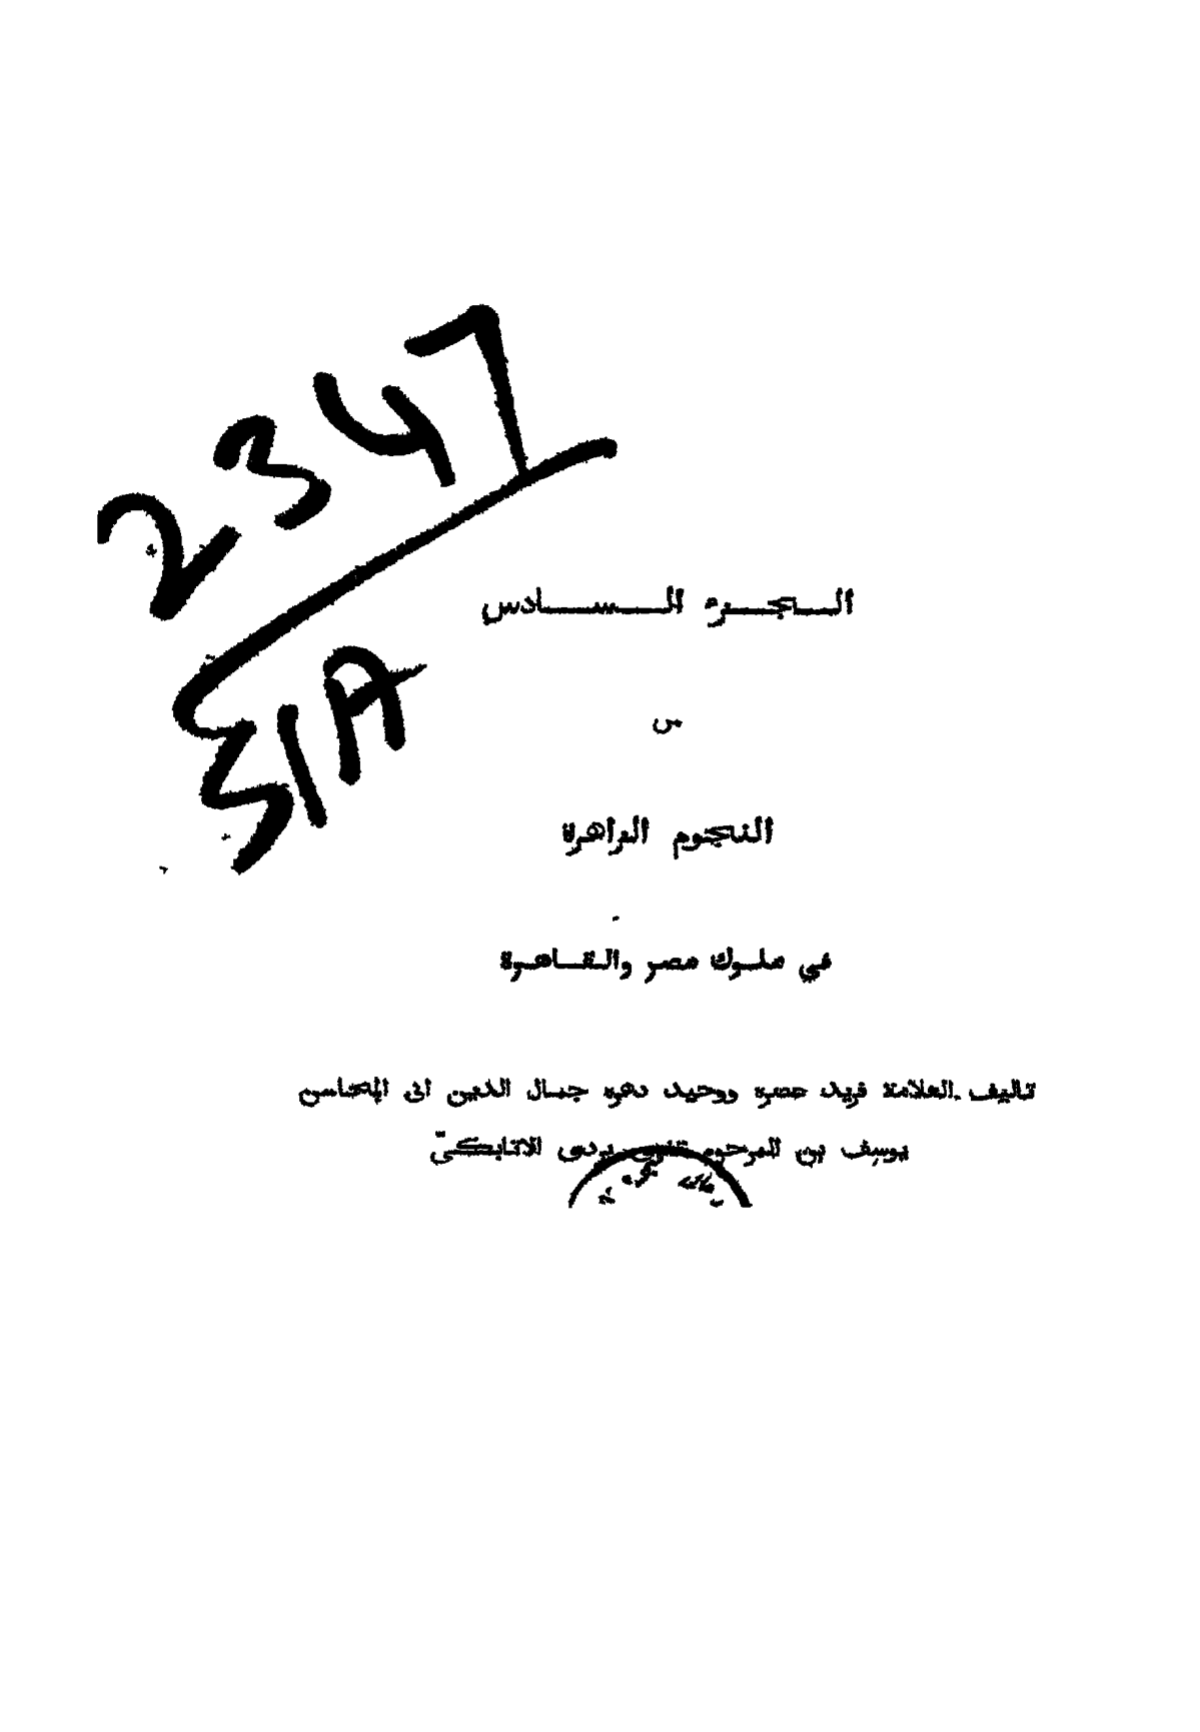 2347
SIA
الجزء السادس
من
النجوم الزاهرة
في ملوك مصر والقاهرة
تاليف العلامة فريد عصره ووحيد دهره جمال الدين ابى المحاسن
يوسف بن المرحوم تغرى بردى الاتابكىّ